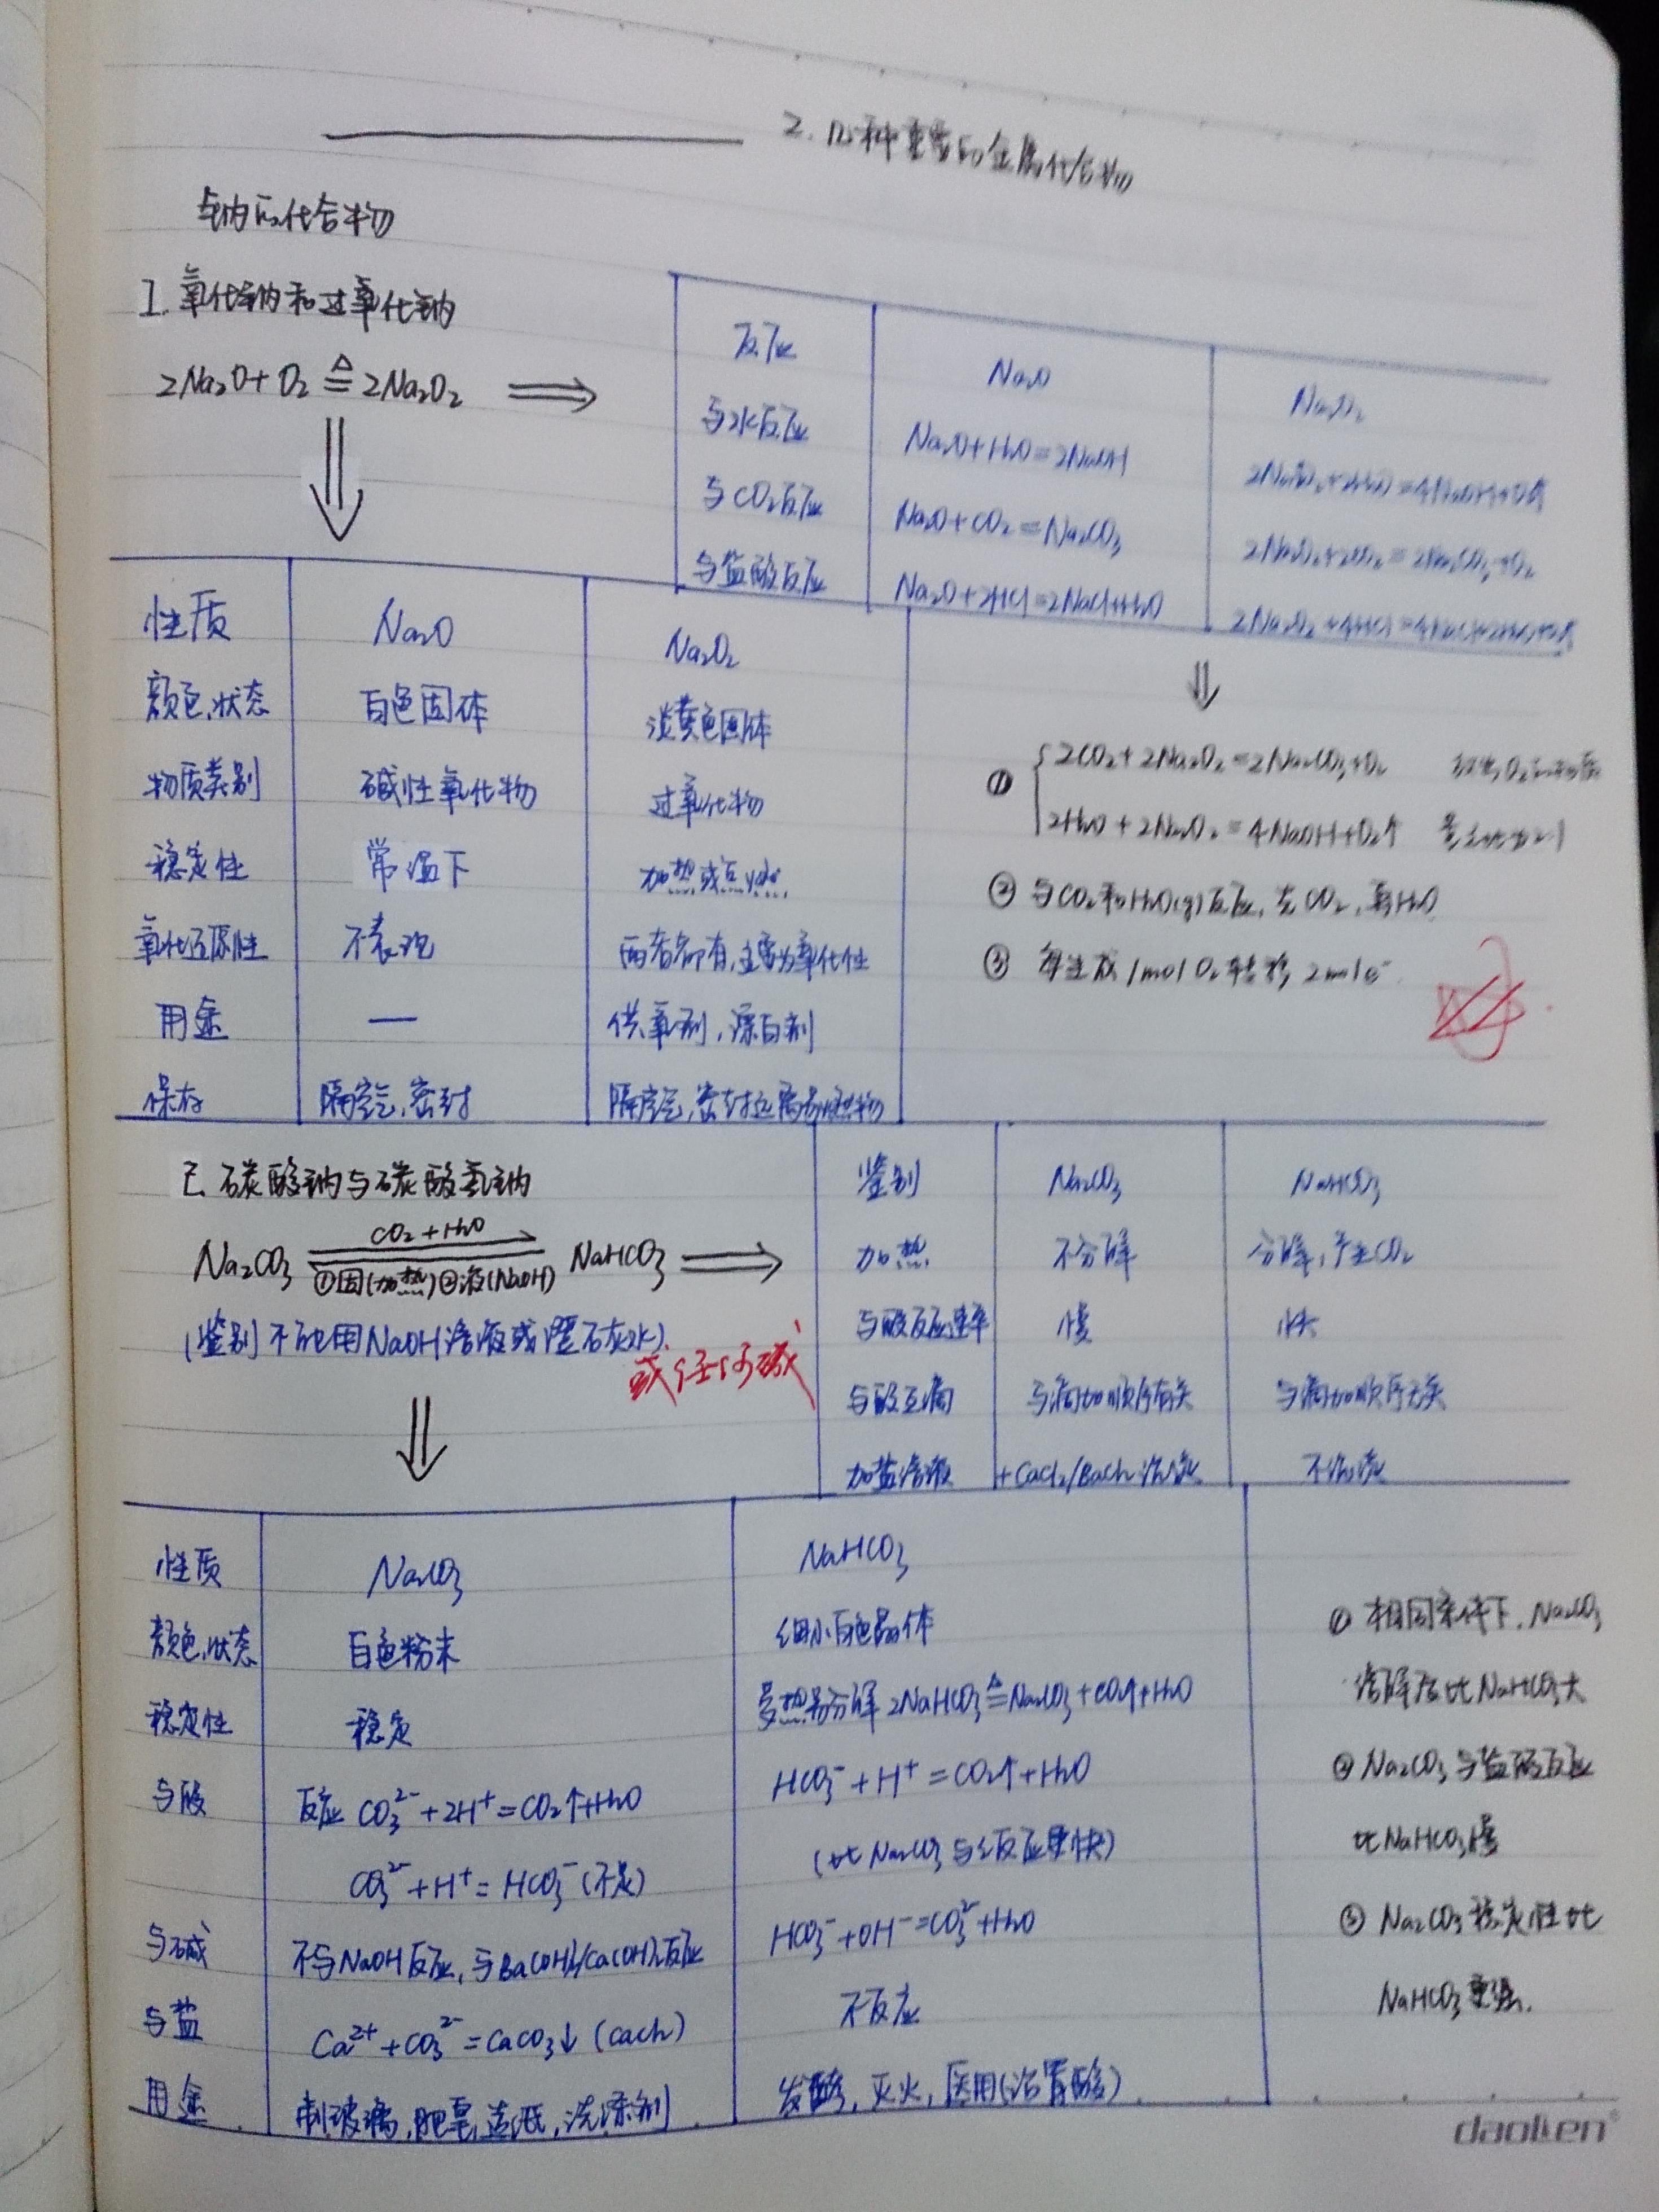 2. 几种重要的金属化合物
钠的化合物
I. 氧化钠和过氧化钠
2Na₂O + O₂ ≜ 2Na₂O₂ ⟹
反应 Na₂O Na₂O₂
与水反应 Na₂O+H₂O=2NaOH 2Na₂O₂+2H₂O=4NaOH+O₂↑
与CO₂反应 Na₂O+CO₂=Na₂CO₃ 2Na₂O₂+2CO₂=2Na₂CO₃+O₂
与盐酸反应 Na₂O+2HCl=2NaCl+H₂O 2Na₂O₂+4HCl=4NaCl+2H₂O+O₂↑
性质 Na₂O Na₂O₂
颜色,状态 白色固体 淡黄色固体
物质类别 碱性氧化物 过氧化物
稳定性 常温下 加热或点燃
氧化还原性 不表现 两者都有,主要为氧化性
用途 — 供氧剂,漂白剂
保存 隔空气,密封 隔空气,密封远离易燃物
① 2CO₂+2Na₂O₂=2Na₂CO₃+O₂
2H₂O+2Na₂O₂=4NaOH+O₂↑
② 与CO₂和H₂O(g)反应,先CO₂,再H₂O
③ 每生成1molO₂转移2mole⁻
己. 碳酸钠与碳酸氢钠
CO₂+H₂O
Na₂CO₃ NaHCO₃ ⟹
①固(加热)②液(NaOH)
(鉴别不能用NaOH溶液或澄石灰水)
或任何碱
鉴别 Na₂CO₃ NaHCO₃
加热 不分解 分解,产生CO₂
与酸反应速率 慢 快
与酸互滴 与滴加顺序有关 与滴加顺序无关
加盐溶液 +CaCl₂/BaCl₂沉淀 不沉淀
性质 Na₂CO₃ NaHCO₃
颜色,状态 白色粉末 细小白色晶体
稳定性 稳定 受热易分解 2NaHCO₃≜Na₂CO₃+CO₂↑+H₂O
与酸 反应 CO₃²⁻+2H⁺=CO₂↑+H₂O HCO₃⁻+H⁺=CO₂↑+H₂O
CO₃²⁻+H⁺=HCO₃⁻(不足) (比Na₂CO₃与之反应更快)
与碱 不与NaOH反应,与Ba(OH)₂/Ca(OH)₂反应 HCO₃⁻+OH⁻=CO₃²⁻+H₂O
与盐 Ca²⁺+CO₃²⁻=CaCO₃↓(CaCl₂) 不反应
用途 制玻璃,肥皂,造纸,洗涤剂 发酵,灭火,医用(治胃酸)
① 相同条件下,Na₂CO₃
溶解度比NaHCO₃大
② Na₂CO₃与盐酸反应
比NaHCO₃慢
③ Na₂CO₃稳定性比
NaHCO₃更强.
daolken